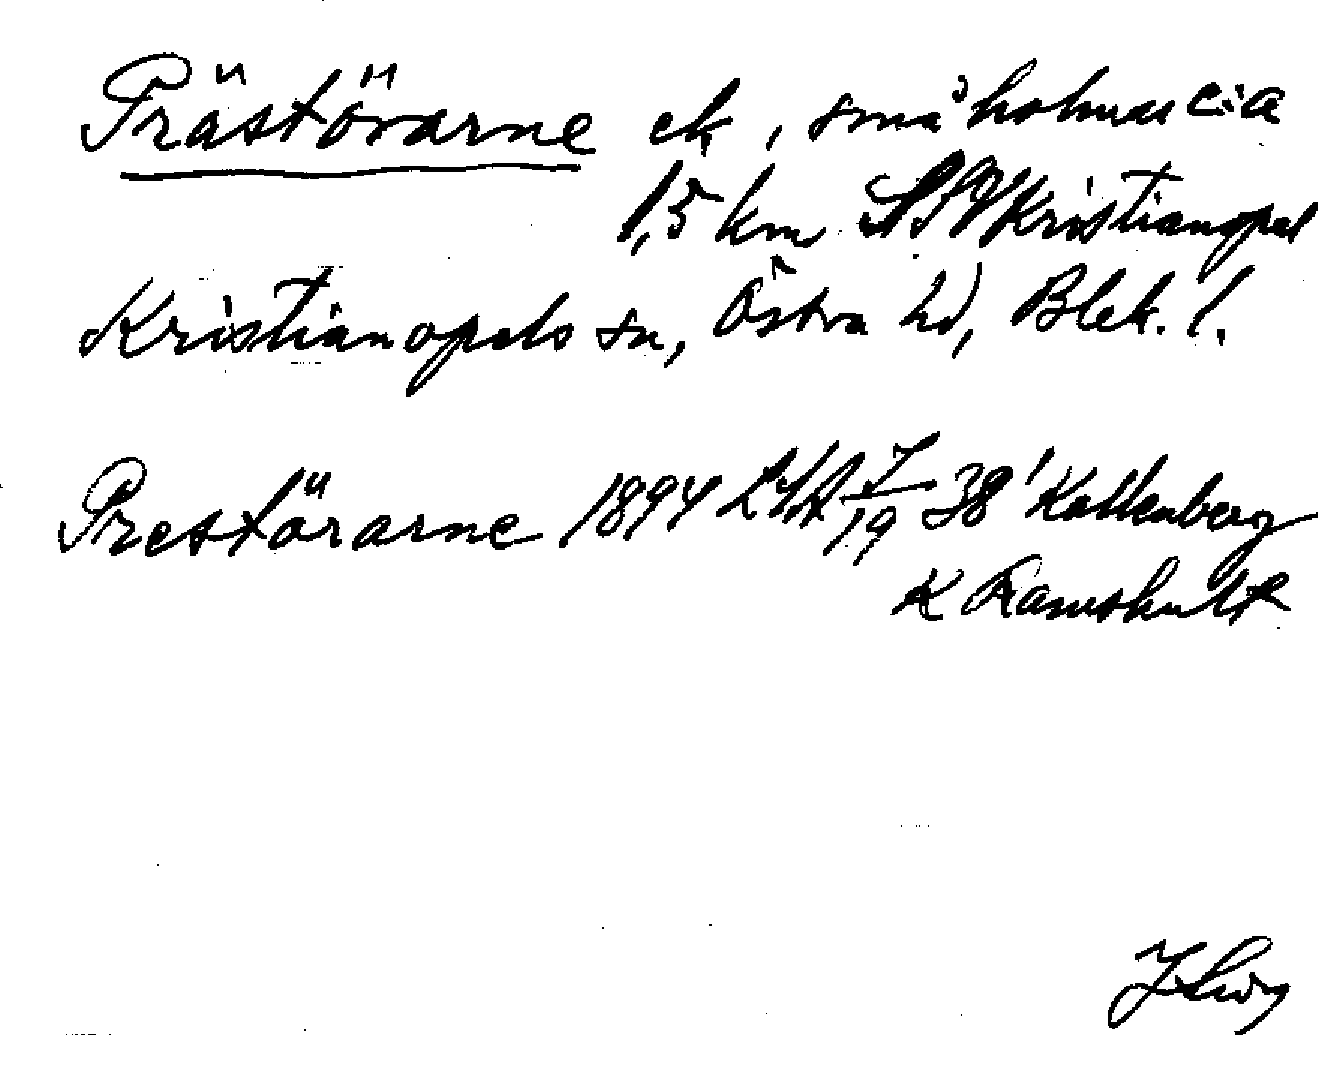 Prästörarne ek, små holmar c:a
1,5 km SSV Kristianopel
Kristianopels sn, Östra hd, Blek. l.
Prestörarne 1894 LSA 7/19 38' Kallenberg
K Ramshult